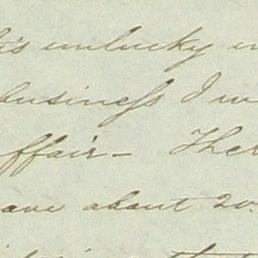 his unlucky
business I
affair – Ther
have about 20